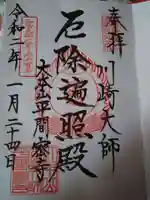 奉拝
川崎大師
厄除遍照殿
大本山平間寺
令和二年一月二十四日